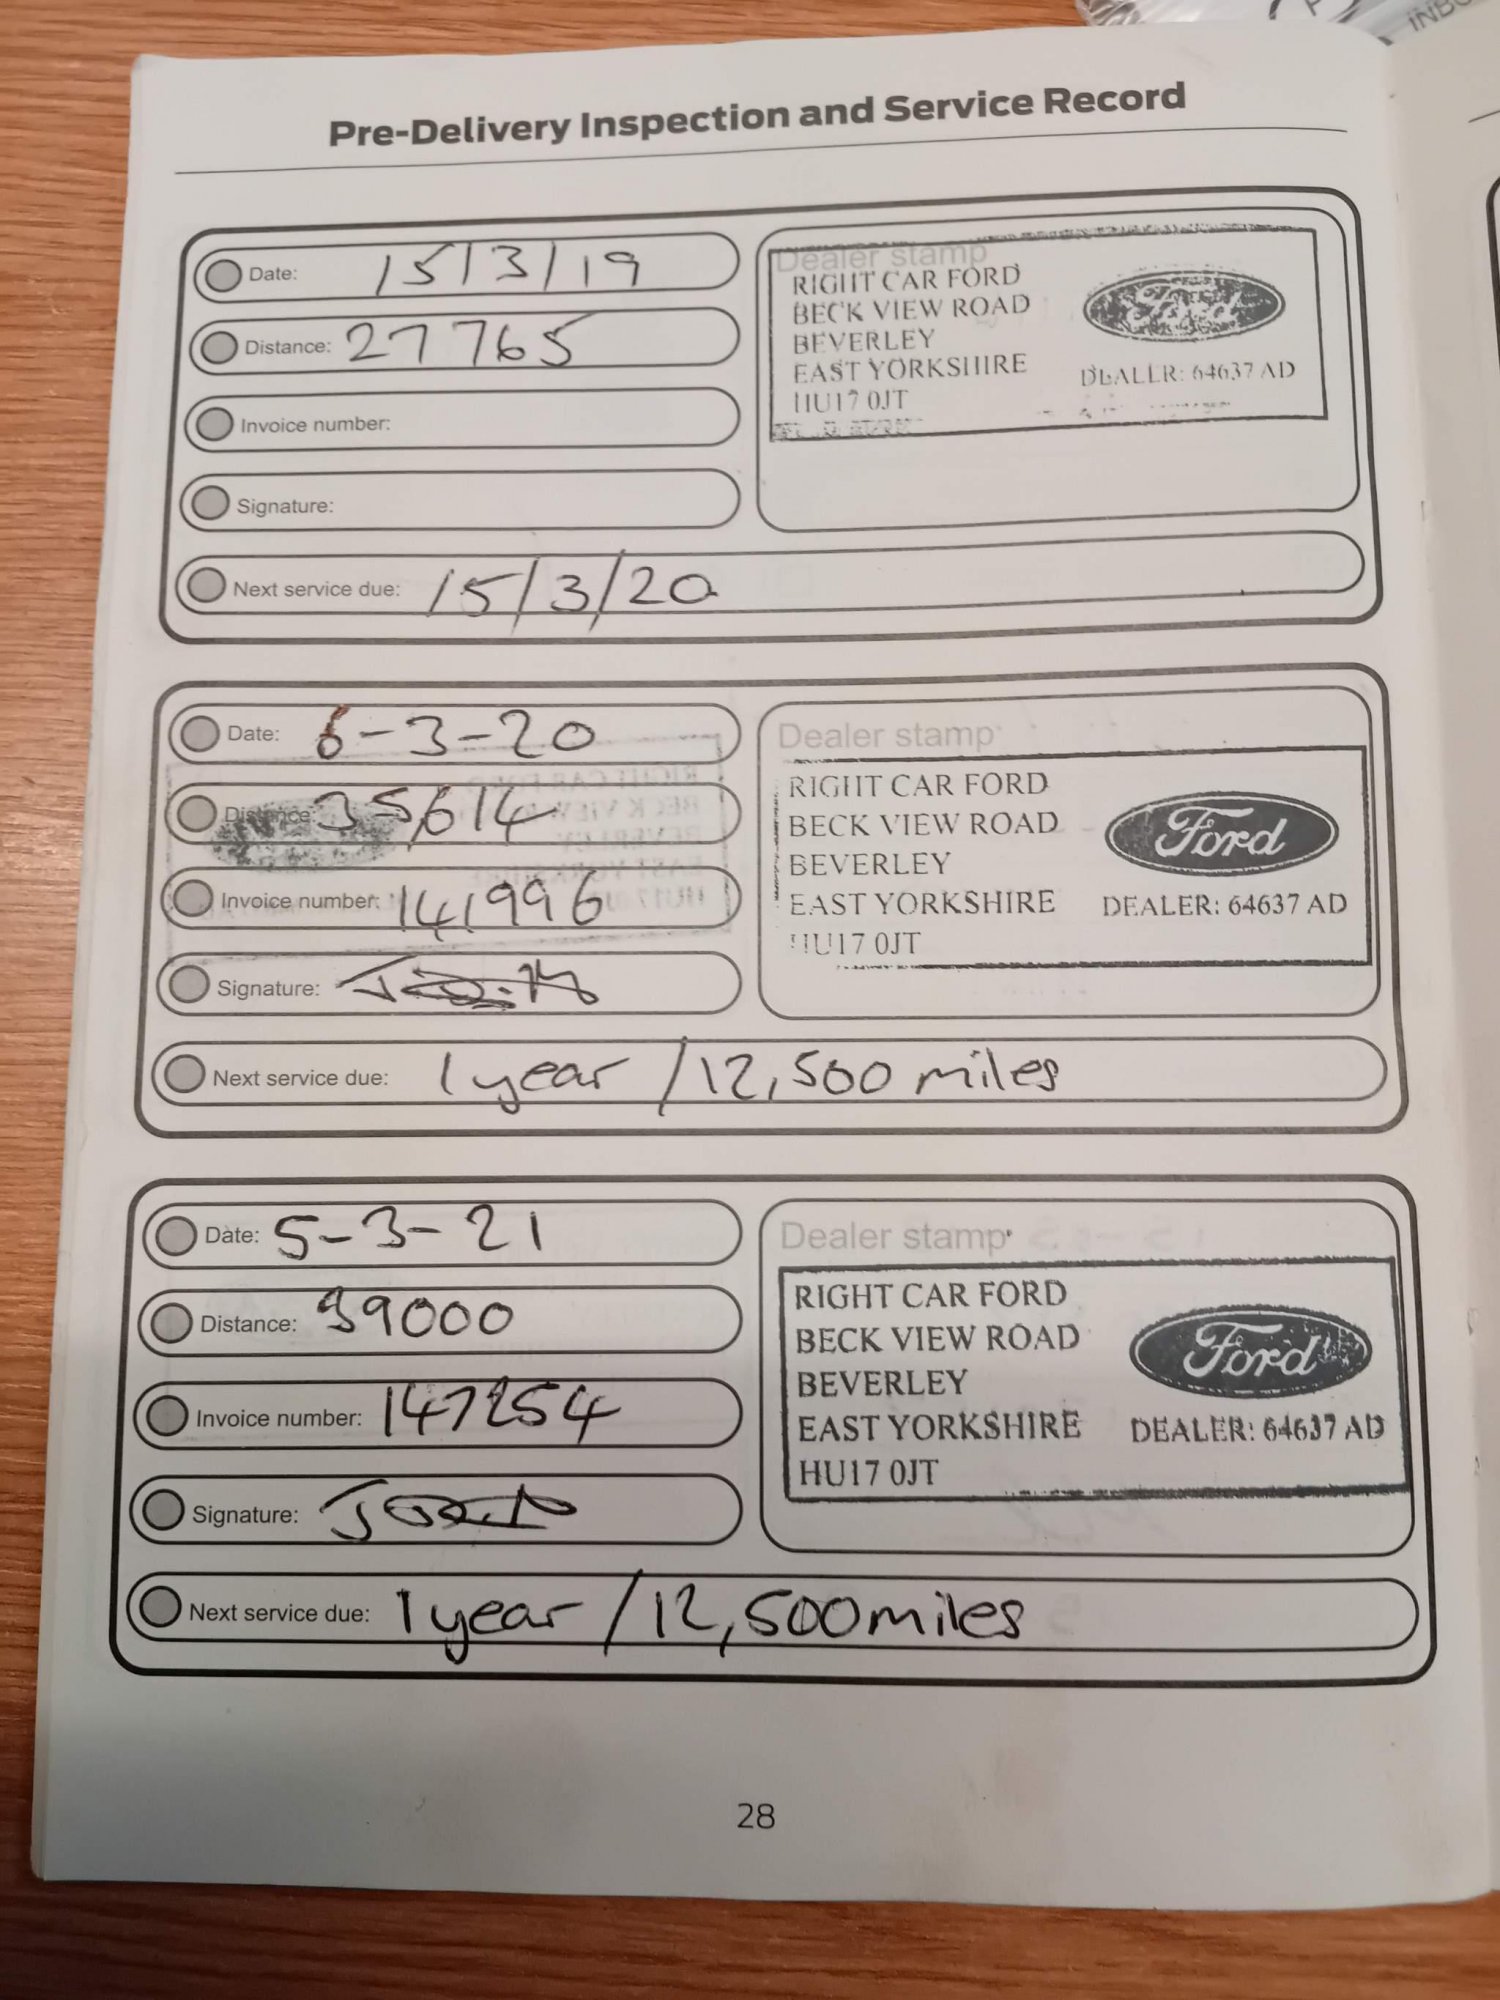 Pre-Delivery Inspection and Service Record
Date: 15/3/19
Distance: 27765
Invoice number:
Signature:
Next service due: 15/3/20
Dealer stamp
RIGHT CAR FORD
BECK VIEW ROAD
BEVERLEY
EAST YORKSHIRE
HU17 0JT
Ford
DEALER: 64637 AD
Date: 6-3-20
Distance: 35,614
Invoice number: 141996
Signature:
Next service due: 1 year / 12,500 miles
Dealer stamp
RIGHT CAR FORD
BECK VIEW ROAD
BEVERLEY
EAST YORKSHIRE
HU17 0JT
Ford
DEALER: 64637 AD
Date: 5-3-21
Distance: 39000
Invoice number: 147254
Signature:
Next service due: 1 year / 12,500 miles
Dealer stamp
RIGHT CAR FORD
BECK VIEW ROAD
BEVERLEY
EAST YORKSHIRE
HU17 0JT
Ford
DEALER: 64637 AD
28